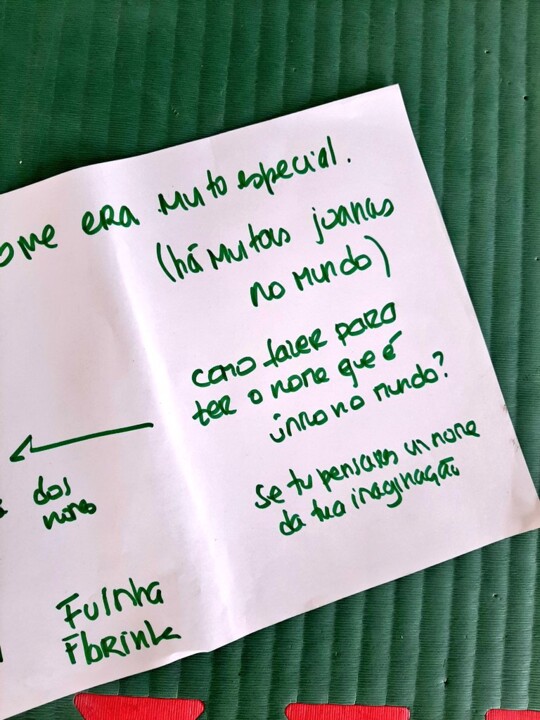 ome era muto especial.
(há muitas joanas
no mundo)
como fazer para
ter o nome que é
único no mundo?
se tu pensares um nome
da tua imaginação
dos
nomes
Fuinha